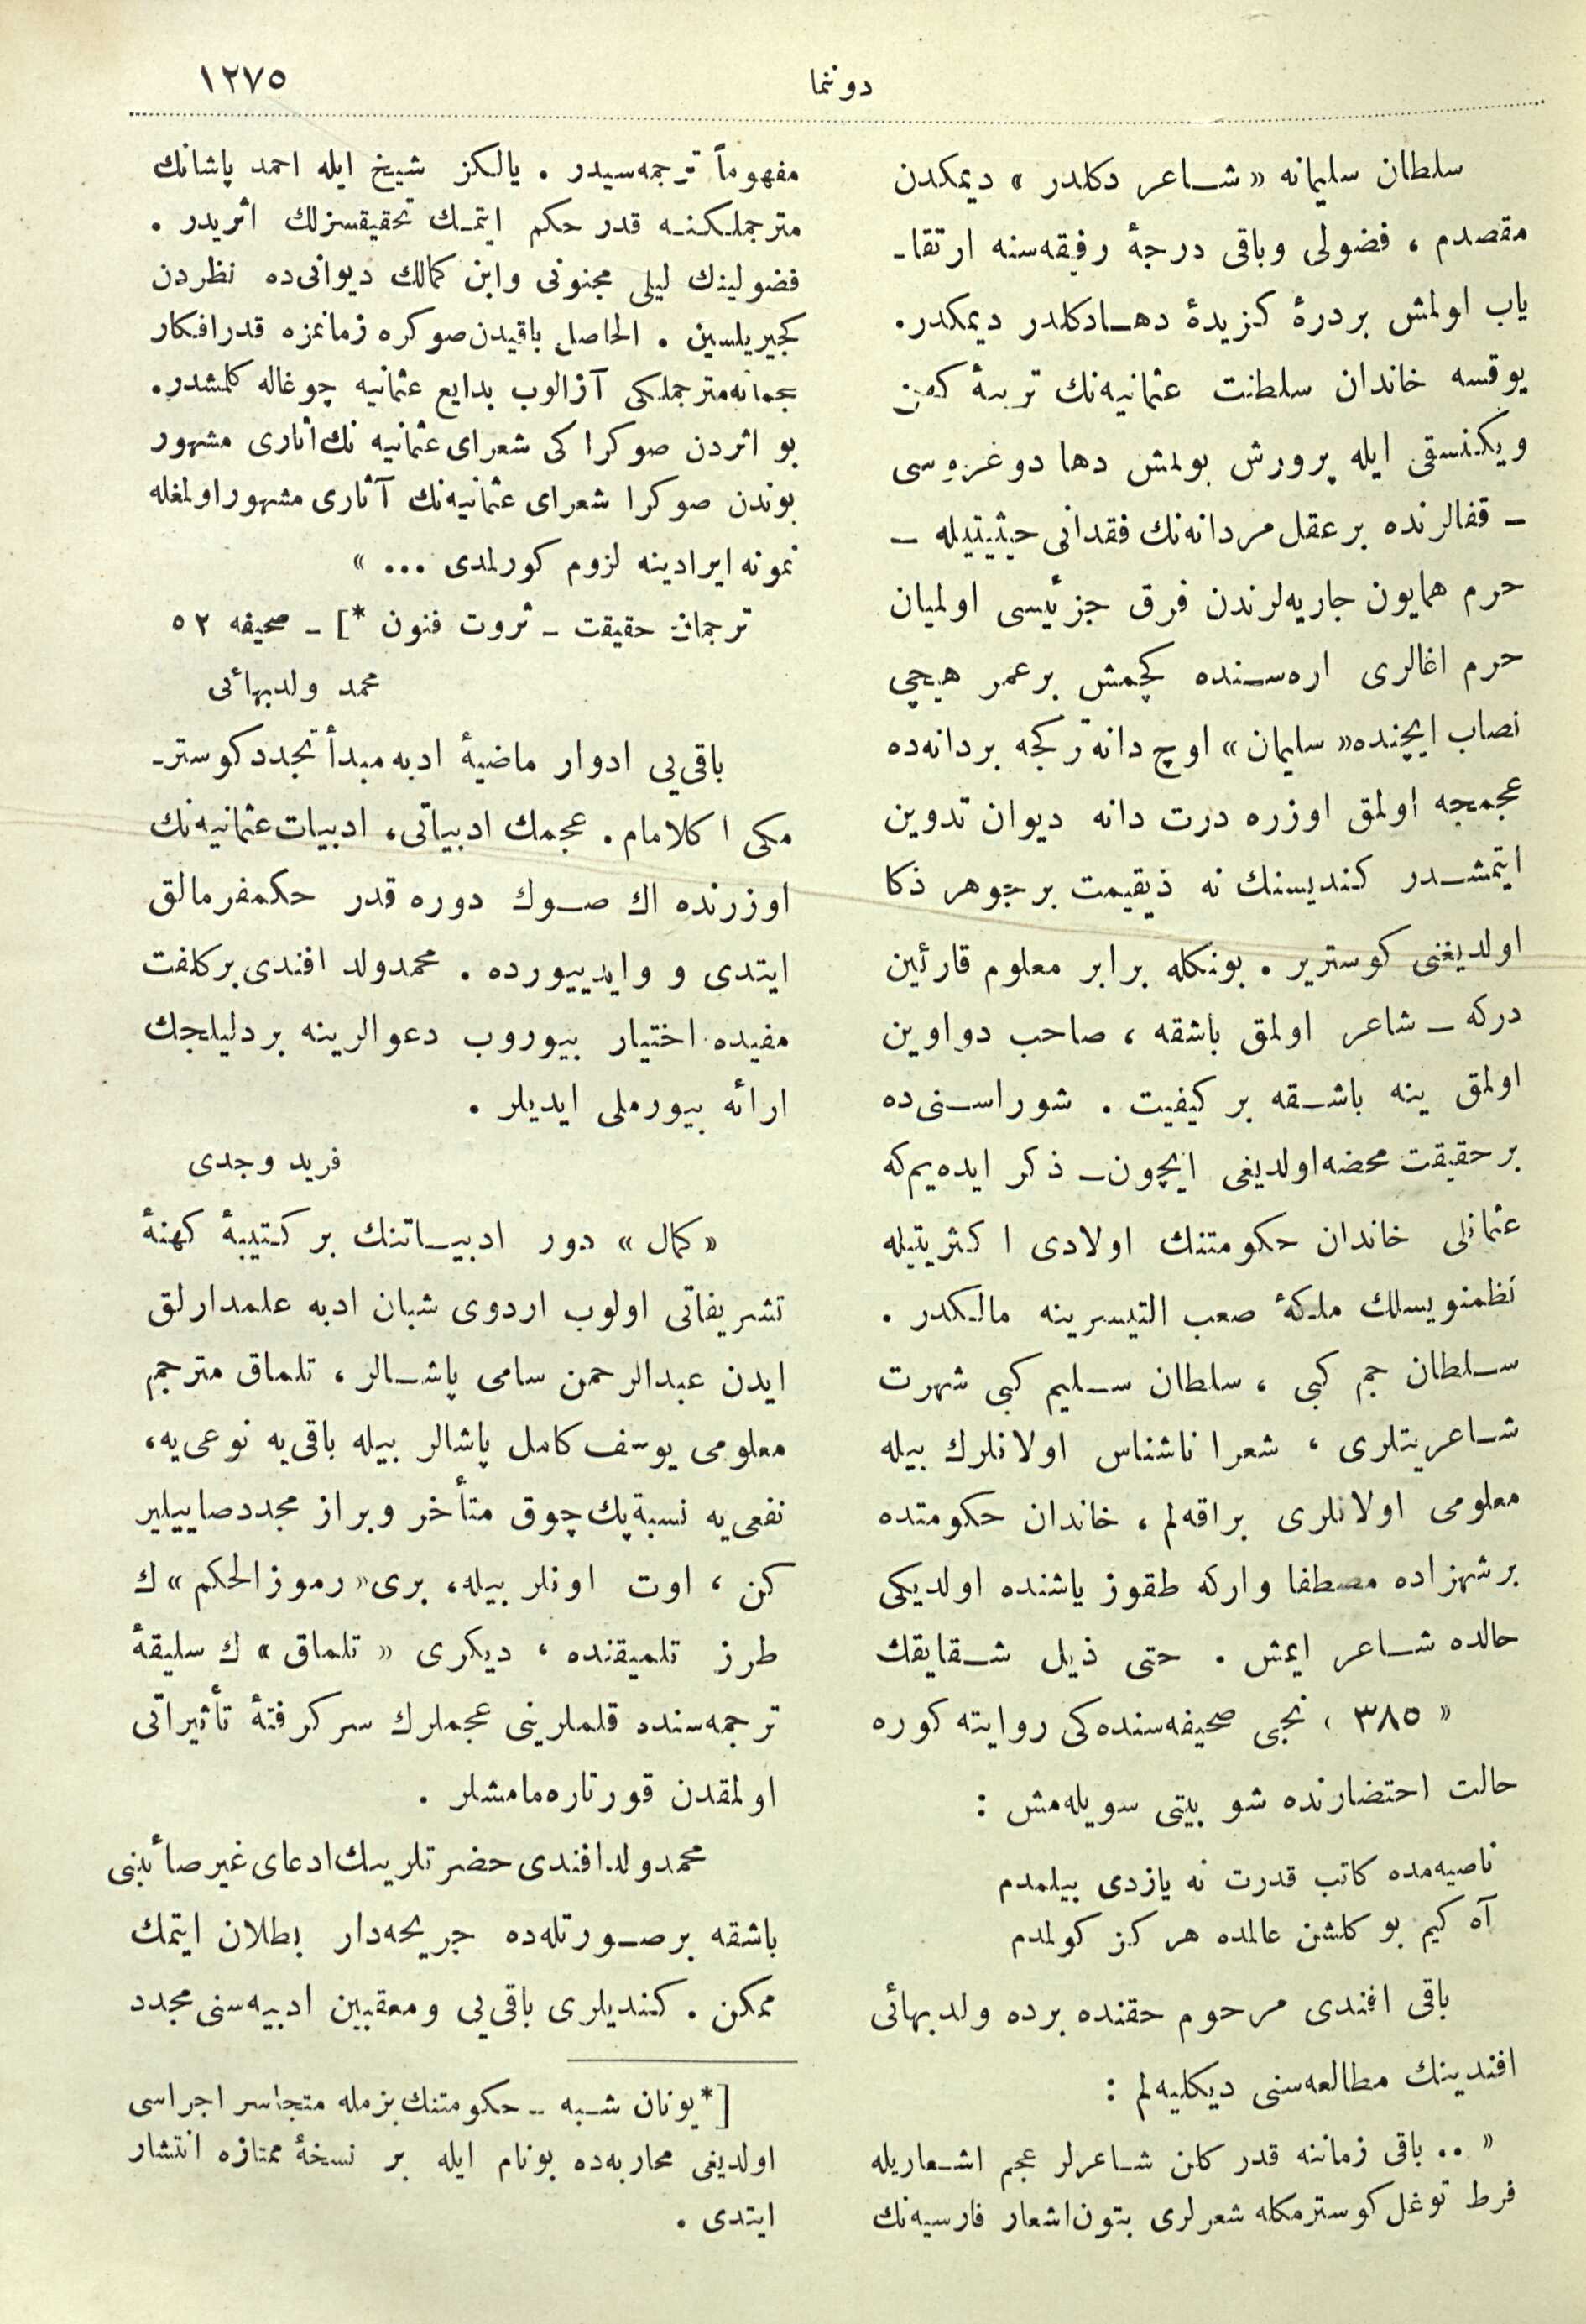 دوننما
١٢٧٥
سلطان سلیمانه «شاعر دكلدر» دیمكدن
مقصدم ، فضولی وباقی درجهٔ رفیقه‌سنه ارتقا-
یاب اولمش بردرهٔ كزیدهٔ دهادكلدر دیمكدر.
یوقسه خاندان سلطنت عثمانیه‌نك تربیهٔ كهن
ویكنسقی ایله پرورش بولمش دها دوغره‌سی
ـ قفالرنده برعقل مردانه‌نك فقدانی حیثیتیله ـ
حرم همایون جاریه‌لرندن فرق جزئیسی اولمیان
حرم اغالری اره‌سنده كچمش برعمر هیچی
نصاب ایچنده «سلیمان» اوچ دانه تركجه بردانه‌ده
عجمجه اولمق اوزره درت دانه دیوان تدوین
ایتمشدر كندیسنك نه ذیقیمت برجوهر ذكا
اولدیغنی كوستریر . بونكله برابر معلوم قارئین
دركه ـ شاعر اولمق باشقه ، صاحب دواوین
اولمق ینه باشقه بر كیفیت . شوراسنی‌ده
برحقیقت محضه‌اولدیغی ایچون ـ ذكر ایده‌یم‌كه
عثمانلی خاندان حكومتنك اولادی اكثریتیله
نظمنویسلك ملكهٔ صعب التیسرینه مالكدر .
سلطان جم كبی ، سلطان سلیم كبی شهرت
شاعریتلری ، شعرا ناشناس اولانلرك بیله
معلومی اولانلری براقه‌لم ، خاندان حكومتده
برشهزاده مصطفا واركه طقوز یاشنده اولدیكی
حالده شاعر ایمش . حتی ذیل شقایقك
« ٣٨٥ ، نجی صحیفه‌سنده‌كی روایته كوره
حالت احتضارنده شو بیتی سویله‌مش :
ناصیه‌مده كاتب قدرت نه یازدی بیلمدم
آه كیم بو كلشن عالمده هركز كولمدم
باقی افندی مرحوم حقنده برده ولدبهائی
افندینك مطالعه‌سنی دیكلیه‌لم :
« .. باقی زماننه قدر كلن شاعرلر عجم اشعاریله
فرط توغل كوسترمكله شعرلری بتون‌اشعار فارسیه‌نك
مفهوماً ترجمه‌سیدر . یالكز شیخ ایله احمد پاشانك
مترجملكنه قدر حكم ایتمك تحقیقسزلك اثریدر .
فضولینك لیلی مجنونی وابن كمالك دیوانی‌ده نظردن
كچیریلسین . الحاصل باقیدن صوكره زمانمزه قدرافكار
عجمانه‌مترجملكی آزالوب بدایع عثمانیه چوغاله كلمشدر.
بو اثردن صوكرا كی شعرای عثمانیه نك‌اثاری مشهور
بوندن صوكرا شعرای عثمانیه‌نك آثاری مشهوراولمغله
نمونه ایرادینه لزوم كورلمدی ... »
ترجمان حقیقت ـ ثروت فنون *] ـ صحیفه ٥٢
محمد ولدبهائی
باقی‌یی ادوار ماضیهٔ ادبه مبدأ تجدد كوستر-
مكی اكلامام . عجمك ادبیاتی، ادبیات عثمانیه‌نك
اوزرنده اك صوك دوره قدر حكمفرمالق
ایتدی و وایدییورده . محمدولد افندی بركلفت
مفیده اختیار بیوروب دعوالرینه بردلیلجك
ارائه بیورملی ایدیلر .
فرید وجدی
«كمال» دور ادبیاتنك بر كتیبهٔ كهنهٔ
تشریفاتی اولوب اردوی شبان ادبه علمدارلق
ایدن عبدالرحمن سامی پاشالر ، تلماق مترجم
معلومی یوسف كامل پاشالر بیله باقی‌یه نوعی‌یه،
نفعی‌یه نسبةپك چوق متأخر وبراز مجددصاییلیر
كن ، اوت اونلر بیله، بری «رموزالحكم» ك
طرز تلمیقنده ، دیكری « تلماق » ك سلیقهٔ
ترجمه‌سنده قلملرینی عجملرك سركرفتهٔ تأثیراتی
اولمقدن قورتاره‌مامشلر .
محمدولدافندی حضرتلرینك‌ادعای غیرصائبنی
باشقه برصورتله‌ده جریحه‌دار بطلان ایتمك
ممكن . كندیلری باقی‌یی ومعقبین ادبیه‌سنی مجدد
[*یونان شبه ـ حكومتنك بزمله متجاسر اجراسی
اولدیغی محاربه‌ده بونام ایله بر نسخهٔ ممتازه انتشار
ایتدی .